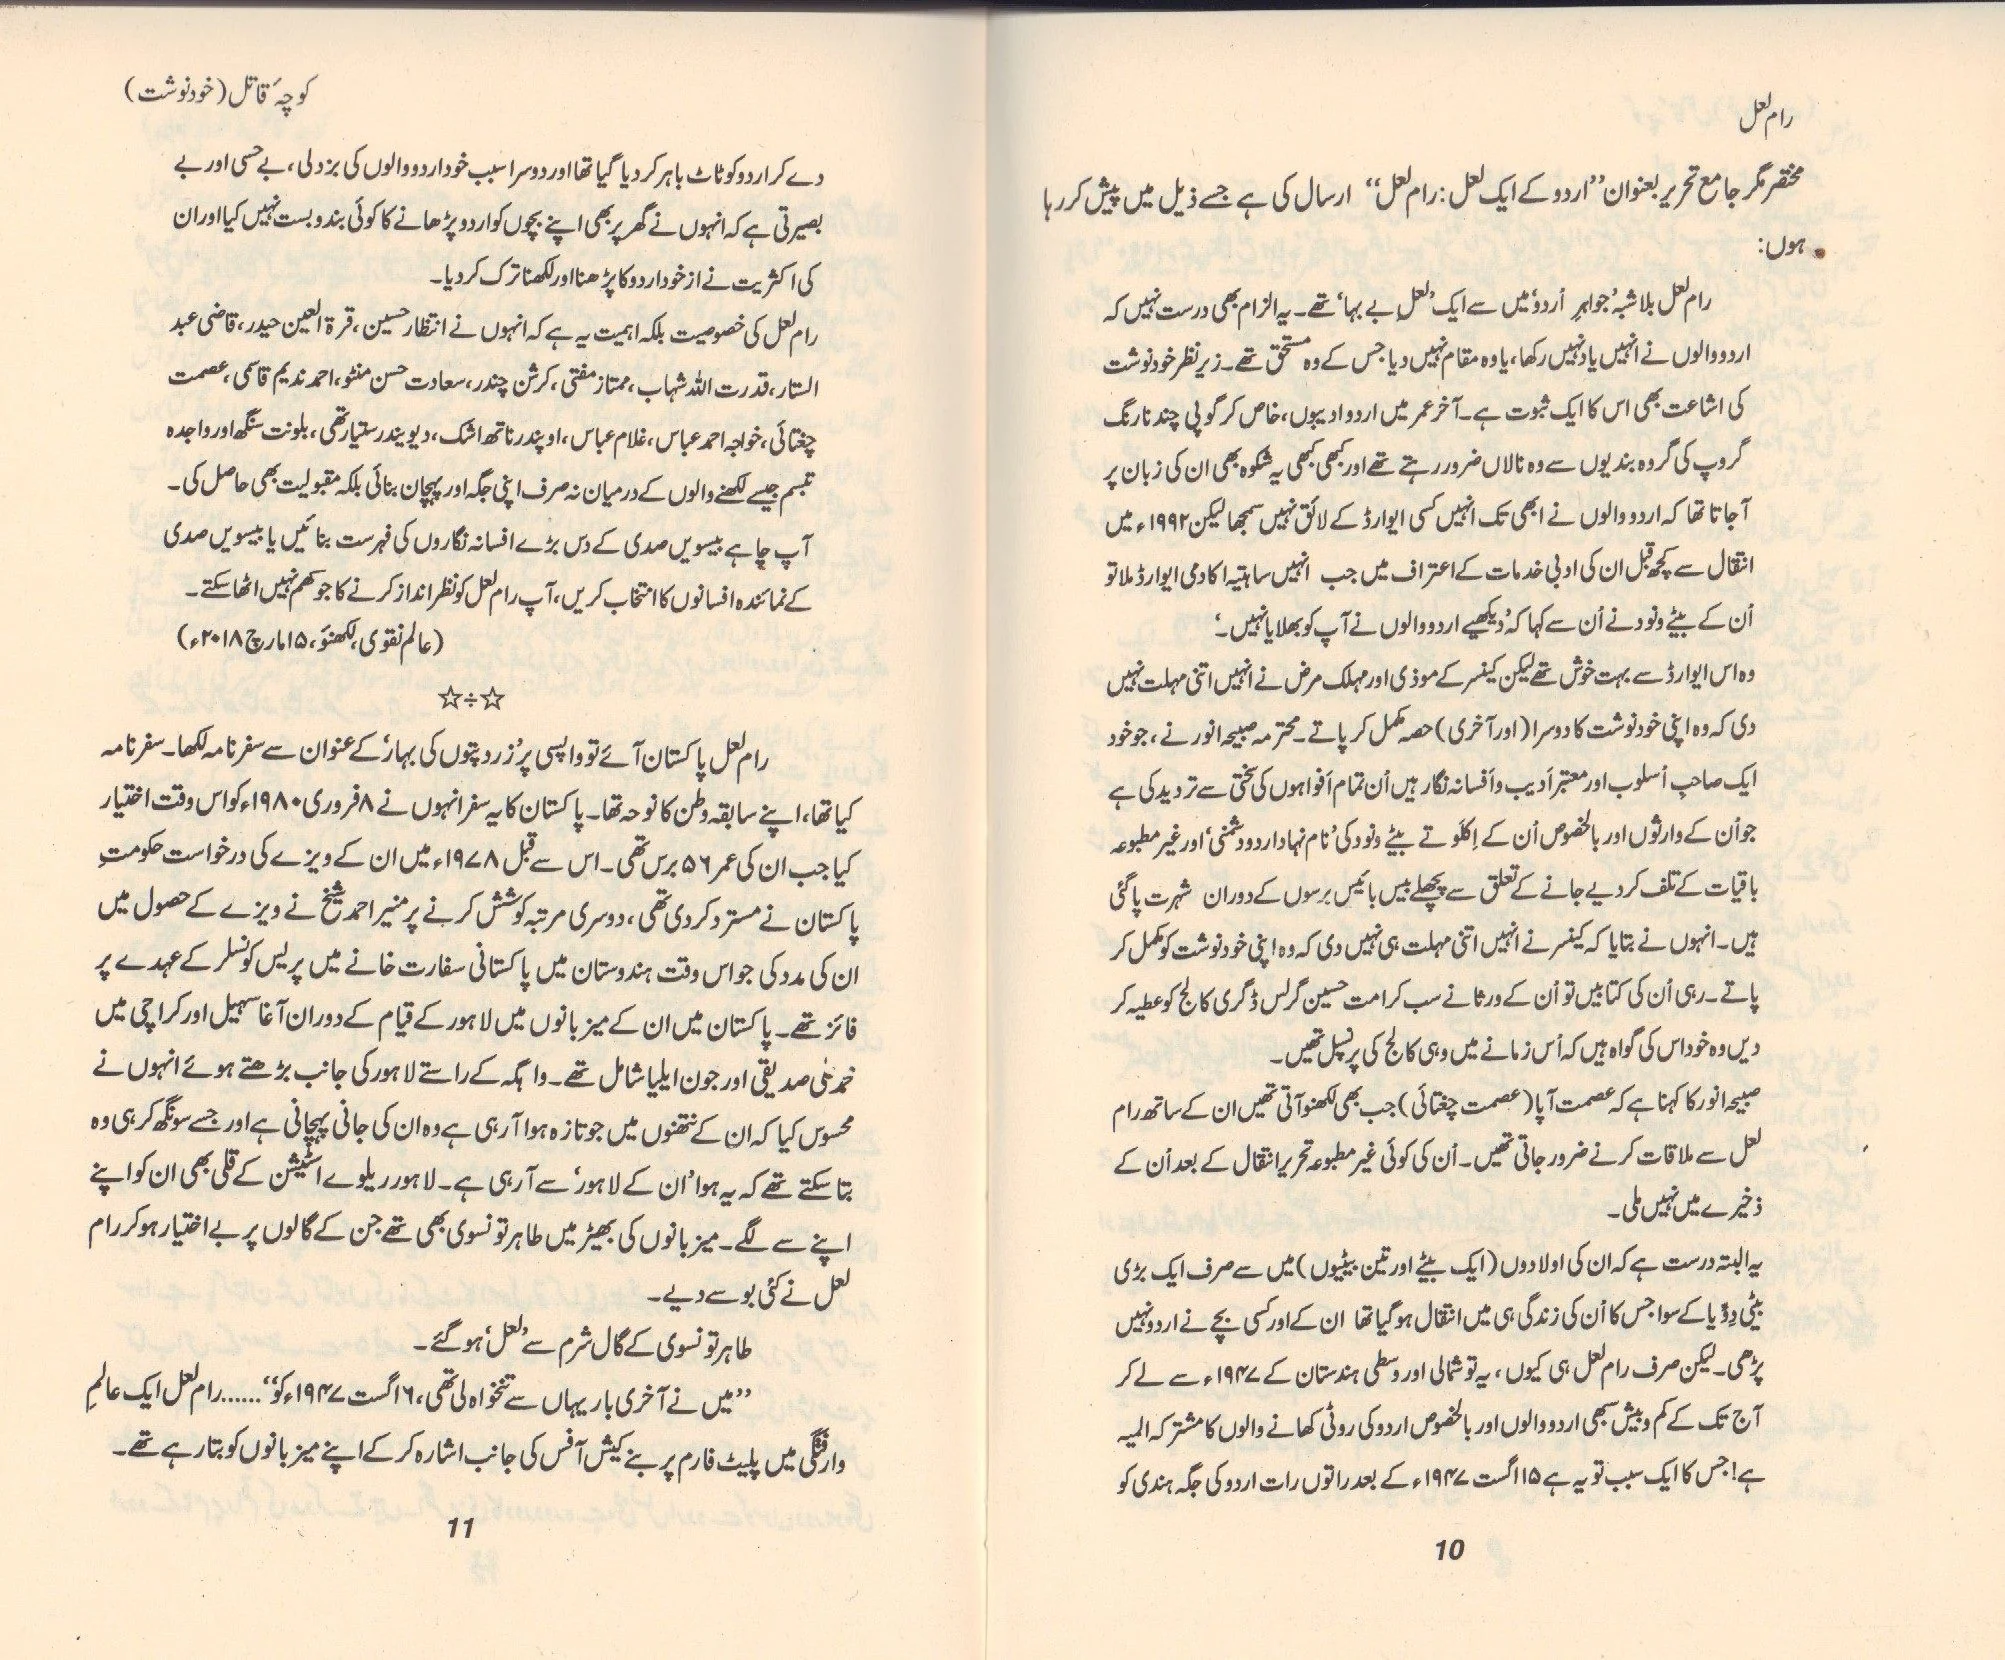 رام لعل
مختصر مگر جامع تحریر بعنوان ”اردو کے ایک لعل: رام لعل“ ارسال کی ہے جسے ذیل میں پیش کر رہا
ہوں:
رام لعل بلاشبہ ’جواہرِ اُردو‘ میں سے ایک ’لعلِ بے بہا‘ تھے۔ یہ الزام بھی درست نہیں کہ
اردو والوں نے انہیں یاد نہیں رکھا، یا وہ مقام نہیں دیا جس کے وہ مستحق تھے۔ زیرِ نظر خودنوشت
کی اشاعت بھی اس کا ایک ثبوت ہے۔ آخر عمر میں اردو ادیبوں، خاص کر گوپی چند نارنگ
گروپ کی گروہ بندیوں سے وہ نالاں ضرور رہتے تھے اور کبھی کبھی یہ شکوہ بھی ان کی زبان پر
آ جاتا تھا کہ اردو والوں نے ابھی تک انہیں کسی ایوارڈ کے لائق نہیں سمجھا لیکن ۱۹۹۲ء میں
انتقال سے کچھ قبل ان کی ادبی خدمات کے اعتراف میں جب انہیں ساہتیہ اکادمی ایوارڈ ملا تو
اُن کے بیٹے ونود نے اُن سے کہا کہ ’دیکھیے اردو والوں نے آپ کو بھلایا نہیں۔‘
وہ اس ایوارڈ سے بہت خوش تھے لیکن کینسر کے موذی اور مہلک مرض نے انہیں اتنی مہلت نہیں
دی کہ وہ اپنی خودنوشت کا دوسرا (اور آخری) حصہ مکمل کر پاتے۔ محترمہ صبیحہ انور نے، جو خود
ایک صاحبِ اُسلوب اور معتبر اَدیب و اَفسانہ نگار ہیں اُن تمام اَفواہوں کی سختی سے تردید کی ہے
جو اُن کے وارثوں اور بالخصوص اُن کے اِکلوتے بیٹے ونود کی ’نام نہاد اردو دشمنی‘ اور غیر مطبوعہ
باقیات کے تلف کر دیے جانے کے تعلق سے پچھلے بیس بائیس برسوں کے دوران شہرت پا گئی
ہیں۔ انہوں نے بتایا کہ کینسر نے انہیں اتنی مہلت ہی نہیں دی کہ وہ اپنی خودنوشت کو مکمل کر
پاتے۔ رہی اُن کی کتابیں تو اُن کے ورثا نے سب کرامت حسین گرلس ڈگری کالج کو عطیہ کر
دیں وہ خود اس کی گواہ ہیں کہ اُس زمانے میں وہی کالج کی پرنسپل تھیں۔
صبیحہ انور کا کہنا ہے کہ عصمت آپا (عصمت چغتائی) جب بھی لکھنؤ آتی تھیں ان کے ساتھ رام
لعل سے ملاقات کرنے ضرور جاتی تھیں۔ اُن کی کوئی غیر مطبوعہ تحریر انتقال کے بعد اُن کے
ذخیرے میں نہیں ملی۔
یہ البتہ درست ہے کہ ان کی اولادوں (ایک بیٹے اور تین بیٹیوں) میں سے صرف ایک بڑی
بیٹی وِدّیا کے سوا جس کا اُن کی زندگی ہی میں انتقال ہو گیا تھا ان کے اور کسی بچے نے اردو نہیں
پڑھی۔ لیکن صرف رام لعل ہی کیوں، یہ تو شمالی اور وسطی ہندستان کے ۱۹۴۷ء سے لے کر
آج تک کے کم و بیش سبھی اردو والوں اور بالخصوص اردو کی روٹی کھانے والوں کا مشترکہ المیہ
ہے! جس کا ایک سبب تو یہ ہے ۱۵ اگست ۱۹۴۷ء کے بعد راتوں رات اردو کی جگہ ہندی کو
10
کوچۂ قاتل (خودنوشت)
دے کر اردو کو ٹاٹ باہر کر دیا گیا تھا اور دوسرا سبب خود اردو والوں کی بزدلی، بے حسی اور بے
بصیرتی ہے کہ انہوں نے گھر پر بھی اپنے بچوں کو اردو پڑھانے کا کوئی بندوبست نہیں کیا اور ان
کی اکثریت نے از خود اردو کا پڑھنا اور لکھنا ترک کر دیا۔
رام لعل کی خصوصیت بلکہ اہمیت یہ ہے کہ انہوں نے انتظار حسین، قرۃ العین حیدر، قاضی عبد
الستار، قدرت اللہ شہاب، ممتاز مفتی، کرشن چندر، سعادت حسن منٹو، احمد ندیم قاسمی، عصمت
چغتائی، خواجہ احمد عباس، غلام عباس، اوپندر ناتھ اشک، دیویندر ستیارتھی، بلونت سنگھ اور واجدہ
تبسم جیسے لکھنے والوں کے درمیان نہ صرف اپنی جگہ اور پہچان بنائی بلکہ مقبولیت بھی حاصل کی۔
آپ چاہے بیسویں صدی کے دس بڑے افسانہ نگاروں کی فہرست بنائیں یا بیسویں صدی
کے نمائندہ افسانوں کا انتخاب کریں، آپ رام لعل کو نظر انداز کرنے کا جوکھم نہیں اٹھا سکتے۔
(عالم نقوی، لکھنؤ، ۱۵ مارچ ۲۰۱۸ء)
☆÷☆
رام لعل پاکستان آئے تو واپسی پر ’زرد پتوں کی بہار‘ کے عنوان سے سفرنامہ لکھا۔ سفرنامہ
کیا تھا، اپنے سابقہ وطن کا نوحہ تھا۔ پاکستان کا یہ سفر انہوں نے ۸ فروری ۱۹۸۰ء کو اس وقت اختیار
کیا جب ان کی عمر ۵۶ برس تھی۔ اس سے قبل ۱۹۷۸ء میں ان کے ویزے کی درخواست حکومتِ
پاکستان نے مسترد کر دی تھی، دوسری مرتبہ کوشش کرنے پر منیر احمد شیخ نے ویزے کے حصول میں
ان کی مدد کی جو اس وقت ہندوستان میں پاکستانی سفارت خانے میں پریس کونسلر کے عہدے پر
فائز تھے۔ پاکستان میں ان کے میزبانوں میں لاہور کے قیام کے دوران آغا سہیل اور کراچی میں
محمد علی صدیقی اور جون ایلیا شامل تھے۔ واہگہ کے راستے لاہور کی جانب بڑھتے ہوئے انہوں نے
محسوس کیا کہ ان کے نتھنوں میں جو تازہ ہوا آ رہی ہے وہ ان کی جانی پہچانی ہے اور جسے سونگھ کر ہی وہ
بتا سکتے تھے کہ یہ ہوا ’ان کے لاہور‘ سے آ رہی ہے۔ لاہور ریلوے اسٹیشن کے قلی بھی ان کو اپنے
اپنے سے لگے۔ میزبانوں کی بھیڑ میں طاہر تونسوی بھی تھے جن کے گالوں پر بے اختیار ہو کر رام
لعل نے کئی بوسے دیے۔
طاہر تونسوی کے گال شرم سے ’لعل‘ ہو گئے۔
”میں نے آخری بار یہاں سے تنخواہ لی تھی، ۱۶ اگست ۱۹۴۷ء کو“ ...... رام لعل ایک عالمِ
وارفتگی میں پلیٹ فارم پر بنے کیش آفس کی جانب اشارہ کر کے اپنے میزبانوں کو بتا رہے تھے۔
11